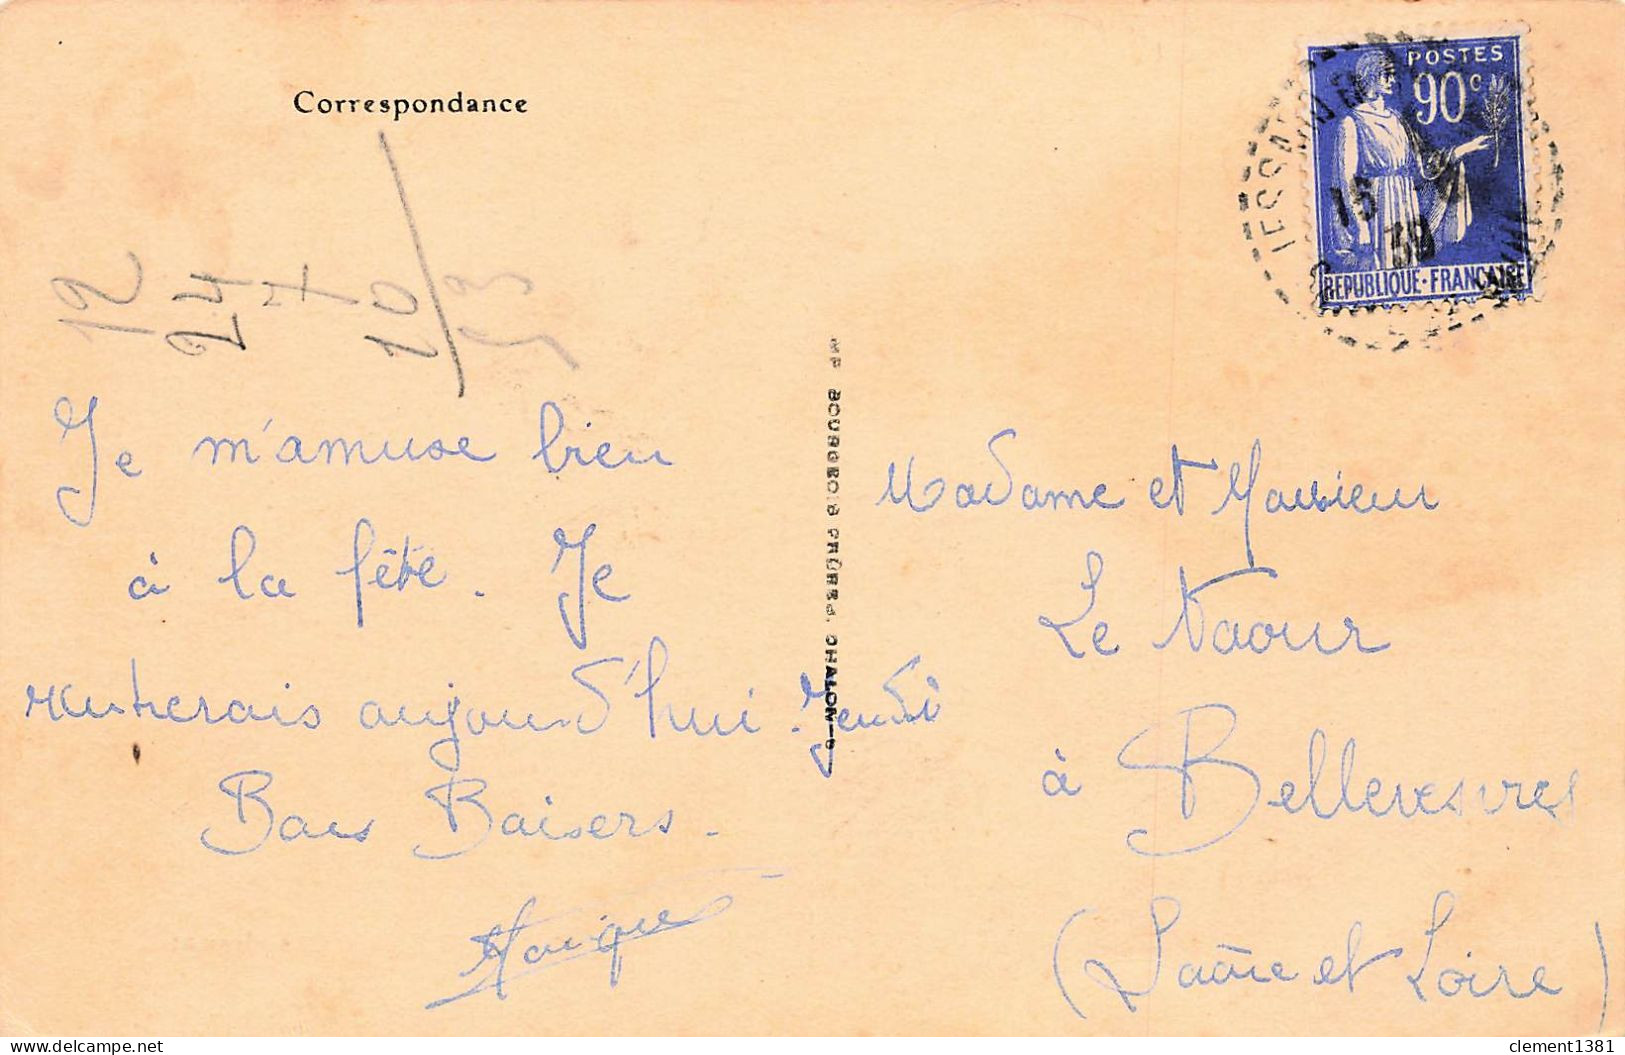 Correspondance
12
24
7
20
Je m'amuse bien
à la fête. Je
rentrerais aujourd'hui. Jeudi
Bons Baisers.
IMP BOURGEOIS FRÈRES, CHALON-S
POSTES
90c
REPUBLIQUE·FRANÇAISE
15
39
Madame et Monsieur
Le Naour
à Bellevesvres
(Saône et Loire)
delcampe.net
clement1381